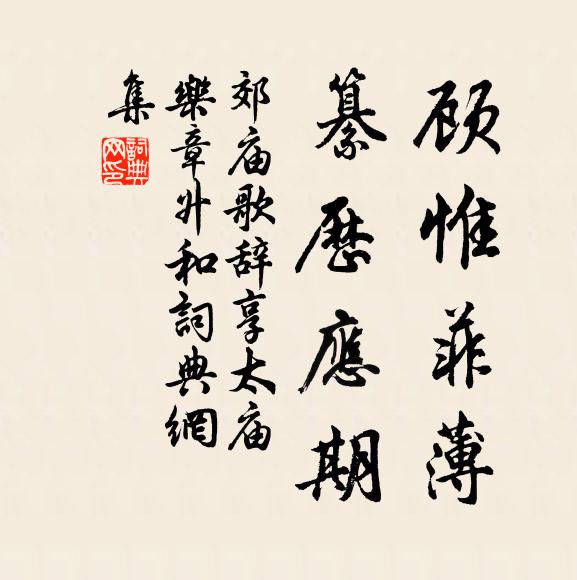 顾惟菲薄
纂历應期
郊庙歌辞享太庙
樂章升和詞典網
集
詞典網印